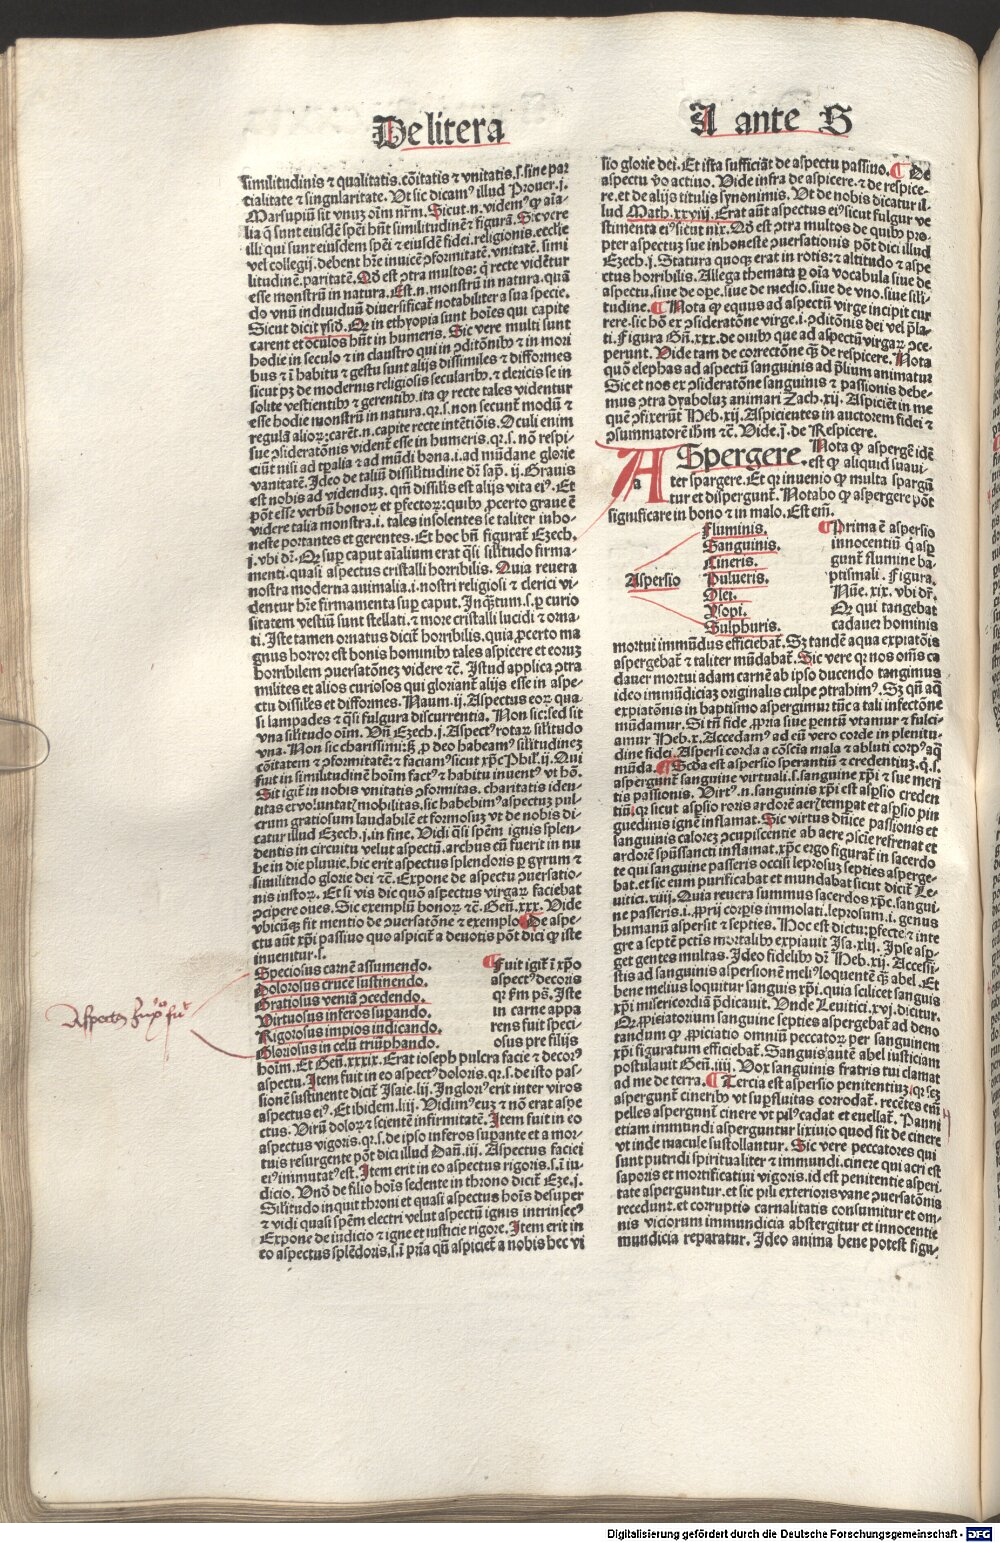 De litera
A ante S
similitudinis ⁊ qualitatis. cōitatis ⁊ vnitatis. s. sine par
tialitate ⁊ singularitate. Vt sic dicamꝰ illud Prouer. j.
Marsupiū sit vnuȝ oīm nr̄m. Sicut. n. videmꝰ ꝙ aīa
lia q̄ sunt eiusdē spēi hn̄t similitudinē ⁊ figurā. Sic vere
illi qui sunt eiusdem spēi ⁊ eiusdē fidei. religionis. ecclie
vel collegij. debent hr̄e inuicē ꝯformitatē. vnitatē. simi
litudinē. paritatē. Qđ est ꝯtra multos: q̄ recte vidētur
esse monstrū in natura. Est. n. monstrū in natura. quā
do vnū indiuiduū diuersificat̄ notabiliter a sua specie.
Sicut dicit ysid̄. Qꝛ in ethyopia sunt hoīes qui capite
carent et oculos hn̄t in humeris. Sic vere multi sunt
hodie in seculo ⁊ in claustro qui in ꝯditōnibꝰ ⁊ in mori
bus ⁊ ī habitu ⁊ gestu sunt alijs dissimiles ⁊ difformes
sicut pȝ de modernis religiosis secularibꝰ. ⁊ clericis se in
solite vestientibꝰ ⁊ gerentibꝰ. ita ꝙ recte tales videntur
esse hodie monstrū in natura. qꝛ. s. non secunt̄ modū ⁊
regulā alioꝝ: carēt. n. capite recte intētiōis. Oculi enim
sue ꝯsideratōnis vident̄ esse in humeris. qꝛ. s. nō respi
ciūt nisi ad tp̄alia ⁊ ad mūdi bona. i. ad mūdane glorie
vanitatē. Ideo de taliū dissilitudine dī sap̄. ij. Grauis
est nobis ad videnduȝ. qm̄ dissilis est alijs vita eiꝰ. Et
pōt esse verbū bonoꝝ et ꝑfectoꝝ: quibꝰ ꝓcerto graue ē
videre talia monstra. i. tales insolentes se taliter inho
neste portantes et gerentes. Et hoc bn̄ figurat̄ Ezech.
j. vbi dr̄. Qꝛ suꝑ caput aīalium erat q̄si silitudo firma
menti. quasi aspectus cristalli horribilis. Quia reuera
nostra moderna animalia. i. nostri religiosi ⁊ clerici vi
dentur hr̄e firmamenta suꝑ caput. Inq̄tum. s. ꝑ curio
sitatem vestiū sunt stellati. ⁊ more cristalli lucidi ⁊ orna
ti. Iste tamen ornatus dicit̄ horribilis. quia ꝓcerto ma
gnus horror est bonis hominibꝰ tales aspicere et eoruȝ
horribilem ꝯuersatōneȝ videre ⁊c̄. Istud applica ꝯtra
milites et alios curiosos qui gloriant̄ alijs esse in aspe
ctu dissiles et difformes. Naum. ij. Aspectus eoꝝ qua
si lampades ⁊ q̄si fulgura discurrentia. Non sic: sed sit
vna silitudo oīm. Vn̄ Ezech. j. Aspectꝰ rotaꝝ silitudo
vna. Non sic charissimi: ß ꝓ deo habeamꝰ silitudineȝ
cōitatem ⁊ ꝯformitatē: ⁊ faciamꝰ sicut xp̄c Phil̄. ij. Qui
fuit in similitudinē hoīm factꝰ ⁊ habitu inuentꝰ vt hō.
Sit igit̄ in nobis vnitatis ꝯformitas. charitatis iden
titas ⁊ volūntatꝭ mobilitas. sic habebimꝰ aspectuȝ pul
crum gratiosum laudabilē et formosuȝ vt de nobis di
catur illud Ezech. j. in fine. Vidi q̄si spēm ignis splen
dentis in circuitu velut aspectū. archus cū fuerit in nu
be in die pluuie. hic erit aspectus splendoris ꝑ gyrum ⁊
similitudo glorie dei ⁊c̄. Expone de aspectu ꝯuersatio
nis iustoꝝ. Et si vis dic quō aspectus virgaꝝ faciebat
ꝯcipere oues. Sic exemplū bonoꝝ ⁊c̄. Gen̄. xxx. Vide
vbicūqȝ fit mentio de ꝯuersatōne ⁊ exemplo. ¶ De aspe
ctu aūt xp̄i passiuo quo aspicit̄ a deuotis pōt dici ꝙ iste
inuenitur. s.
Speciosus carnē assumendo.
Dolorosus crucē sustinendo.
Gratiosus veniā ꝯcedendo.
Virtuosus inferos suꝑando.
Rigorosus impios iudicando.
Gloriosus in celū triūphando.
¶ Fuit igit̄ ī xp̄o
aspectꝰ decoris
qꝛ fm̄ ps̄. Iste
in carne appa
rens fuit speci
osus pre filijs
hoīm. Et Gen̄. xxxix. Erat ioseph pulcra facie ⁊ decorꝰ
aspectu. Item fuit in eo aspectꝰ doloris. qꝛ. s. de isto pas
sionē sustinente dicit̄ Isaie. lij. Inglorꝰ erit inter viros
aspectus eiꝰ. Et ibidem. liij. Vidimꝰ euȝ ⁊ nō erat aspe
ctus. Virū doloꝝ ⁊ scientē infirmitatē. Item fuit in eo
aspectus vigoris. qꝛ. s. de ipso inferos suꝑante et a mor
tuis resurgente pōt dici illud Dan̄. iij. Aspectus faciei
eiꝰ immutatꝰ est. Item erit in eo aspectus rigoris. s. ī iu
dicio. Vnō de filio hoīs sedente in throno dicit̄ Eze. j.
Silitudo inquit throni et quasi aspectus hoīs desuper
⁊ vidi quasi spēm electri velut aspectū ignis intrinsecꝰ
Expone de iudicio ⁊ igne et iusticie rigore. Item erit in
eo aspectus splēdoris. s. ī pr̄ia qn̄ aspiciet̄ a nobis hec vi
Aspectꝰ
sio glorie dei. Et ista sufficiāt de aspectu passiuo. ¶ De
aspectu v̄o actiuo. Vide infra de aspicere. ⁊ de respice
re. et de alijs titulis synonimis. Vt de nobis dicatur il
lud Math. xxviij. Erat aūt aspectus eiꝰ sicut fulgur ve
stimenta eiꝰ sicut nix. Qđ est ꝯtra multos de quibꝰ pro
pter aspectuȝ sue inhoneste ꝯuersationis pōt dici illud
Ezech. j. Statura quoqȝ erat in rotis: ⁊ altitudo ⁊ aspe
ctus horribilis. Allega themata ꝑ oīa vocabula siue de
aspectu. siue de oꝑe. siue de medio. siue de vno. siue sili
tudine. ¶ Nota ꝙ equus ad aspectū virge incipit cur
rere. sic hō ex ꝯsideratōne virge. i. ꝯditōnis dei vel p̄la
ti. Figura Gn̄. xxx. de ouibꝰ que ad aspectū virgaꝝ ꝯce
perunt. Vide tam de correctōne q̄ȝ de respicere. Nota
quō elephas ad aspectū sanguinis ad p̄lium animatur
Sic et nos ex ꝯsideratōne sanguinis ⁊ passionis debe
mus ꝯtra dyaboluȝ animari Zach. xij. Aspiciēt in me
quē ꝯfixerūt Heb. xij. Aspicientes in auctorem fidei ⁊
ꝯsummatorē ihm ⁊c̄. Vide. j. de Respicere.
ASpergere. Nota ꝙ aspergē idē
est ꝙ aliquid suaui
ter spargere. Et qꝛ inuenio ꝙ multa spargū
tur et disperguntꝭ. Notabo ꝙ aspergere pōt
significare in bono ⁊ in malo. Est em̄.
Aspersio
Fluminis.
Sanguinis.
Cineris.
Pulueris.
Olei.
Ysopi.
Sulphuris.
¶ Prima ē aspersio
innocentiū q̄ asꝑ
gunt̄ flumine ba
ptismali. Figura.
Nūe. xix. vbi dr̄.
Qꝛ qui tangebat
cadauer hominis
mortui immūdus efficiebat̄. Sȝ tandē aqua expiatōis
aspergebat̄ ⁊ taliter mūdabat̄. Sic vere qꝛ nos om̄s ca
dauer mortui adam carnē ab ipso ducendo tangimus
ideo immūdiciaȝ originalis culpe ꝯtrahimꝰ. Sȝ qn̄ aq̄
expiatōnis in baptismo aspergimur tūc a tali infectōne
mūdamur. Si tn̄ fide ꝓpria siue ꝑentū vtamur ⁊ fulci
amur Heb. x. Accedamꝰ ad eū vero corde in plenitu
dine fidei. Aspersi corda a cōscīa mala ⁊ abluti corpꝰ aq̄
mūda. ¶ Scđa est aspersio sperantiū ⁊ credentiuȝ. q̄. s.
aspergunt̄ sanguine virtuali. s. sanguine xp̄i ⁊ sue meri
tis passionis. Virtꝰ. n. sanguinis xp̄i est aspsio creden
tiū. qꝛ sicut aspsio roris ardorē aerꝭ temꝑat et aspsio pin
guedinis ignē inflamat. Sic virtus dn̄ice passionis et
sanguinis caloreȝ ꝯcupiscentie ab aere ꝯscīe refrenat et
ardorē spūssancti inflamat. xp̄c ergo figurat̄ in sacerdo
te qui sanguine passeris occisi leprosuȝ septies asperge
bat. et sic eum purificabat et mundabat sicut dicit̄ Le
uitici. xiiij. Quia reuera summus sacerdos xp̄c. sangui
ne passeris. i. ꝓprij corpis immolati. leprosum. i. genus
humanū aspersit ⁊ septies. Hoc est dictu: ꝑfecte ⁊ inte
gre a septē pctis mortalibꝰ expiauit Isa. xlij. Ipse asꝑ
get gentes multas. Ideo fidelibꝰ dī Heb. xij. Accessi
stis ad sanguinis aspersionem meliꝰ loquentē q̄ȝ abel. Et
bene melius loquitur sanguis xp̄i. quia scilicet sanguis
xp̄i misericordiā p̄dicauit. Vnde Leuitici. xvj. dicitur.
Qꝛ ꝓpiciatorium sanguine septies aspergebat̄ ad deno
tandum ꝙ ꝓpiciatio omniū peccatoꝝ per sanguinem
xp̄i figuratum efficiebat̄. Sanguis autē abel iusticiam
postulauit Gen̄. iiij. Vox sanguinis fratris tui clamat
ad me de terra. ¶ Tercia est aspersio penitentiuȝ. qꝛ sez
aspergunt̄ cineribꝰ vt suꝑfluitas corrodat̄. recētes em̄
pelles aspergunt̄ cinere vt pilꝰ cadat et euellat̄. Panni
etiam immundi asperguntur lixiuio quod fit de cinere
vt inde macule sustollantur. Sic vere peccatores qui
sunt putridi spiritualiter ⁊ immundi. cinere qui acri est
saporis et mortificatiui vigoris. id est penitentie asperi
tate asperguntur. et sic pili exterioris vane ꝯuersatōnis
recedunt. et corruptio carnalitatis consumitur et om
nis viciorum immundicia abstergitur et innocentie
mundicia reparatur. Ideo anima bene potest figu
Digitalisierung gefördert durch die Deutsche Forschungsgemeinschaft - DFG